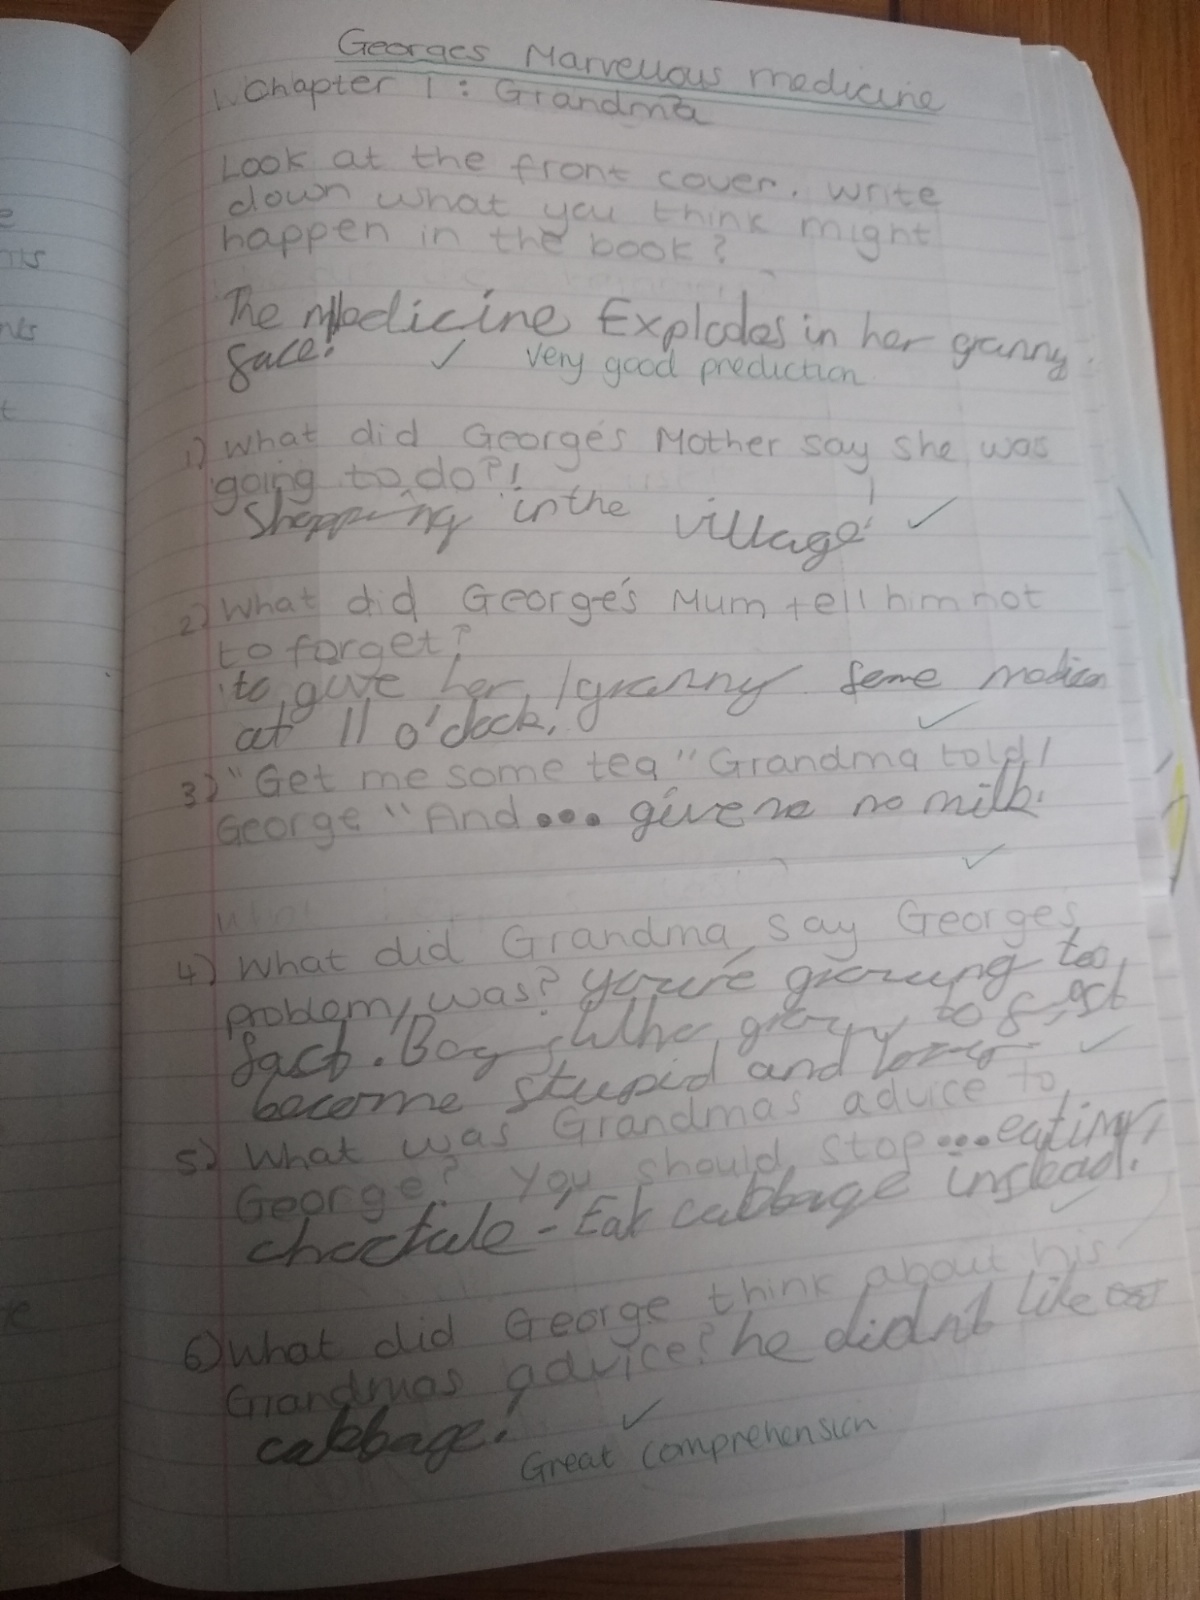 Georges Marvellous medicine
1. Chapter 1: Grandma
Look at the front cover. Write
down what you think might
happen in the book?
The Medicine Explodes in her granny
face!
✓ Very good prediction
1) What did George's Mother say she was
going to do?!
Shopping in the village! ✓
2) What did George's Mum tell him not
to forget?
to give her /granny some medicin
at 11 o'clock. ✓
3) "Get me some tea" Grandma told
George "And... give me no milk.
✓
4) What did Grandma say Georges
problem was? You're growing too
fast. Boys Who grow to fast
become stupid and ✓
5) What was Grandmas advice to
George? You should stop...eating
choctale - Eat cabbage instead. ✓
6) What did George think about his
Grandmas advice? he didn't like
cabbage. ✓
Great comprehension
e
ms
nts
t
e